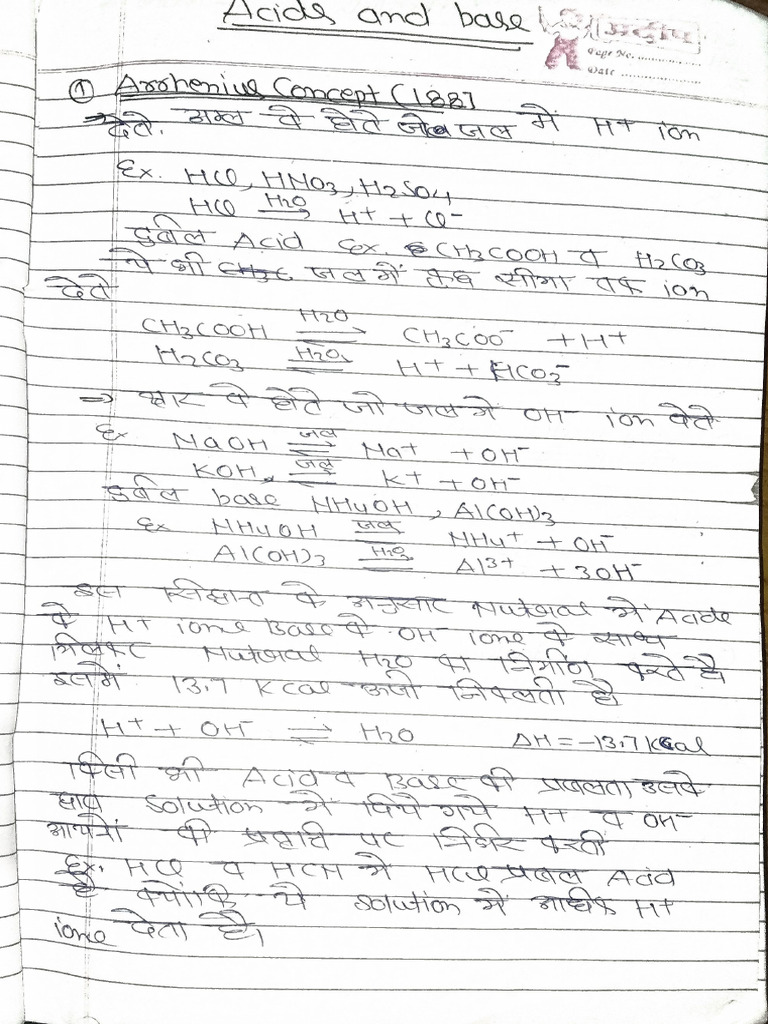 Acids and base
Page No. ..................
Date ......................
① Arrhenius Concept (1887
→ अम्ल वे होते जो जल में H+ ion
देते.
Ex. HCl, HNO3, H2SO4
HCl H2O→ H+ + Cl-
दुर्बल Acid Ex. CH3COOH व H2CO3
ये भी जल में कुछ सीमा तक ion
देते
CH3COOH H2O⇌ CH3COO- + H+
H2CO3 H2O⇌ H+ + HCO3-
→ क्षार वे होते जो जल में OH- ion देते
Ex NaOH जल⇌ Na+ + OH-
KOH जल⇌ K+ + OH-
दुर्बल base NH4OH, Al(OH)3
Ex NH4OH जल⇌ NH4+ + OH-
Al(OH)3 H2O⇌ Al3+ + 3OH-
इस सिद्धान्त के अनुसार Nutural में Acids
के H+ ions Base के OH- ions के साथ
मिलकर Nutural H2O का निर्माण करते है।
इसमें 13.7 Kcal ऊर्जा निकलती है।
H+ + OH- ⇌ H2O ΔH = -13.7 Kcal
किसी भी Acid व Base की प्रबलता उसके
द्वारा solution में दिये गये H+ व OH-
आयनों की पर निर्भर करती
Ex. HCl व HCN में HCl प्रबल Acid
है क्योंकि ये solution में अधिक H+
ions देता है।